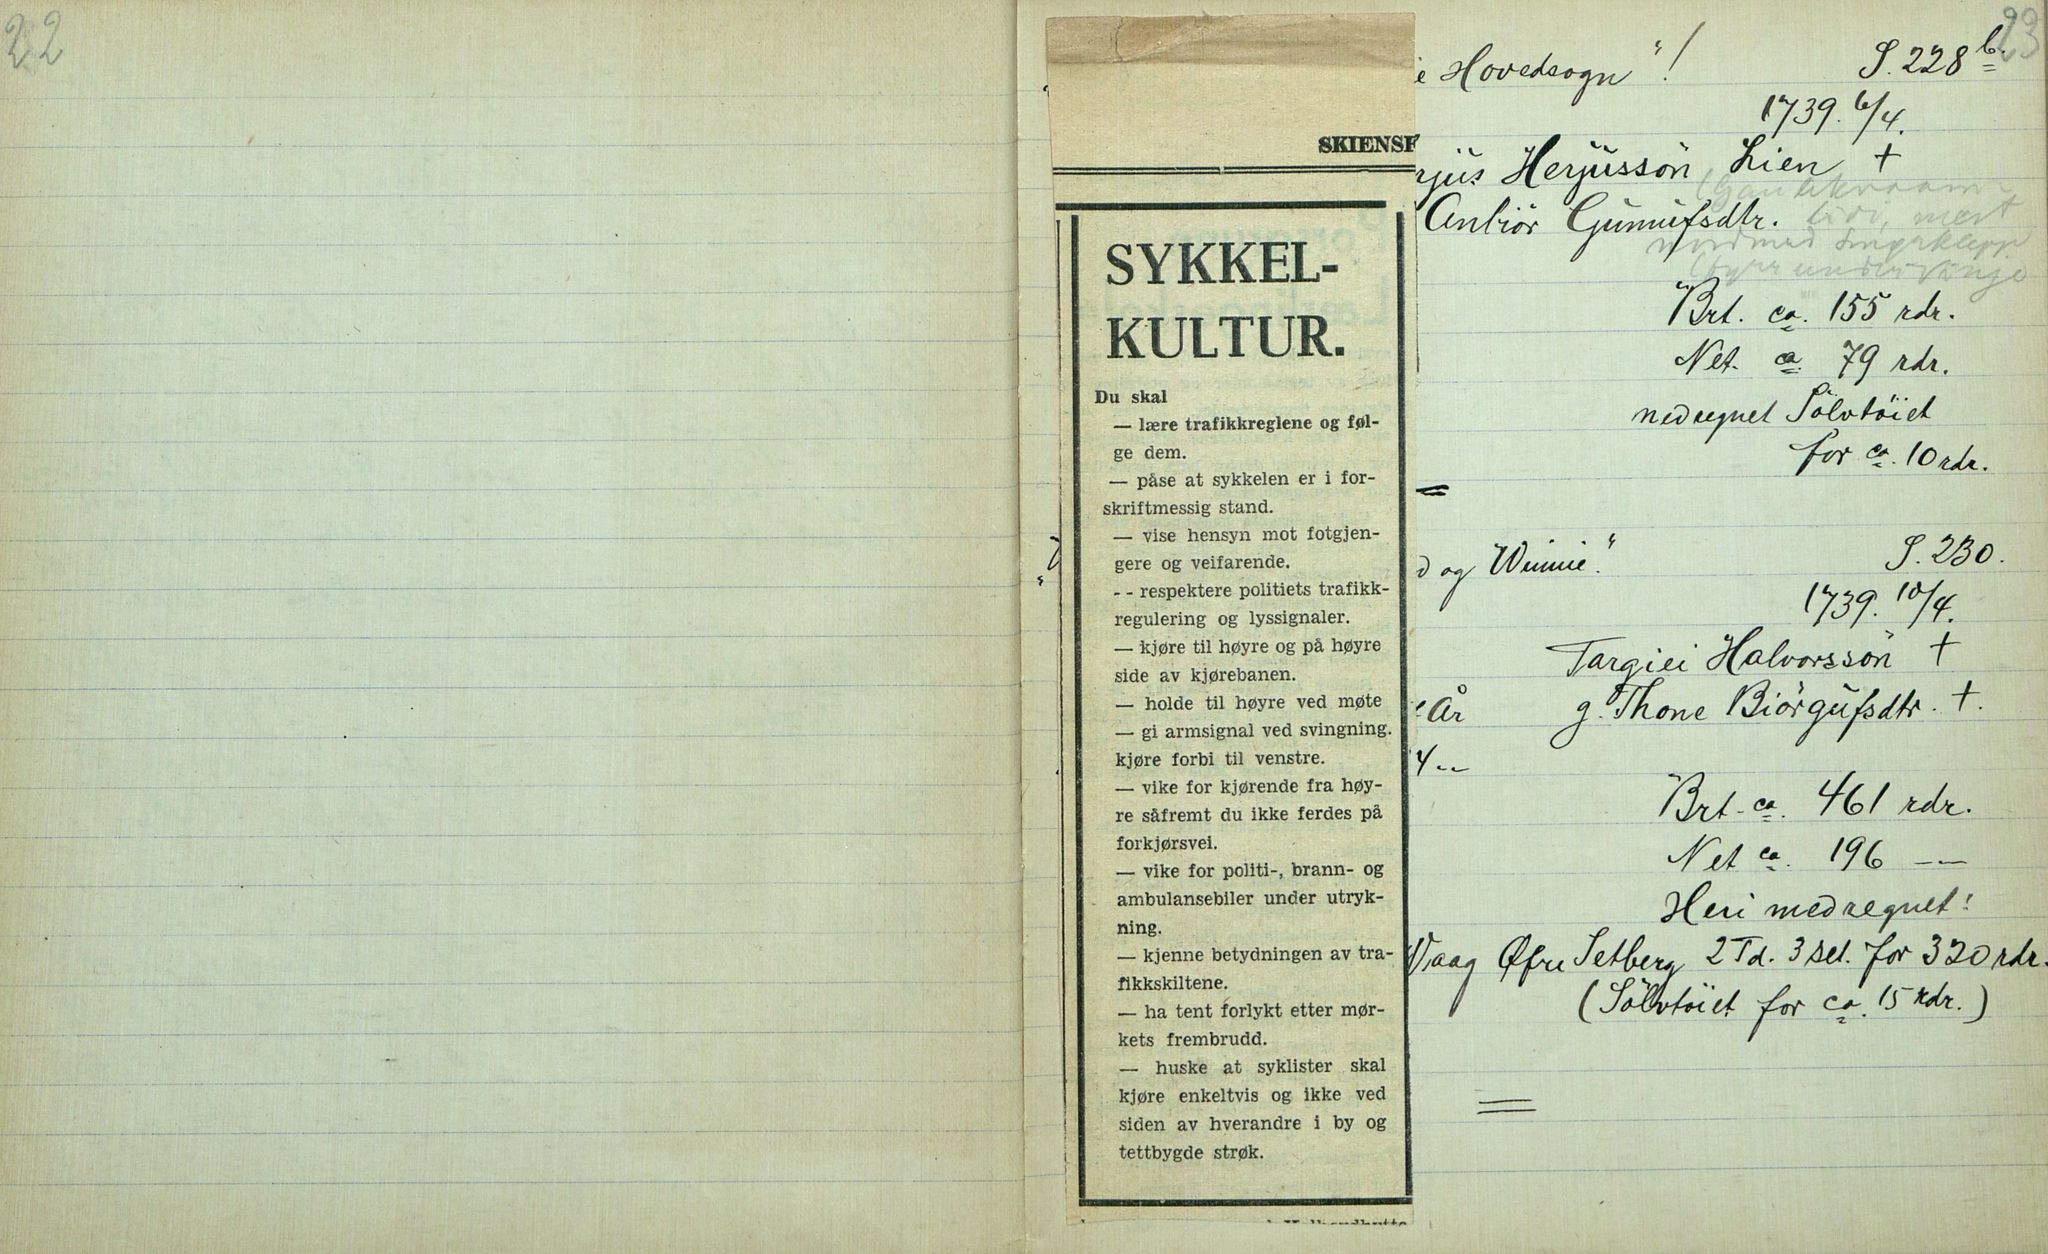 22
SKIENSF
SYKKEL-
KULTUR.
Du skal
— lære trafikkreglene og føl-
ge dem.
— påse at sykkelen er i for-
skriftmessig stand.
— vise hensyn mot fotgjen-
gere og veifarende.
-- respektere politiets trafikk-
regulering og lyssignaler.
— kjøre til høyre og på høyre
side av kjørebanen.
— holde til høyre ved møte
— gi armsignal ved svingning.
kjøre forbi til venstre.
— vike for kjørende fra høy-
re såfremt du ikke ferdes på
forkjørsvei.
— vike for politi-, brann- og
ambulansebiler under utryk-
ning.
— kjenne betydningen av tra-
fikkskiltene.
— ha tent forlykt etter mør-
kets frembrudd.
— huske at syklister skal
kjøre enkeltvis og ikke ved
siden av hverandre i by og
tettbygde strøk.
23
Hovedsogn"!	S. 228 b.
1739. 6/4.
rjus Herjussön Lien +
Anbiör Gunufsdtr.
Brt. ca. 155 rdr.
Net. ca. 79 rdr.
medregnet Sölvtöiet
for ca. 10 rdr.
og Winnie".	S. 230.
1739. 10/4.
Targiei Halvorssön +
År	g. Thone Biörgufsdtr. +.
4 --
Brt. ca. 461 rdr.
Net ca. 196 --
Heri medregnet:
Vaag Øfre Setberg 2 Td. 3 sel. for 320 rdr.
(Sölvtöiet for ca. 15 rdr.)